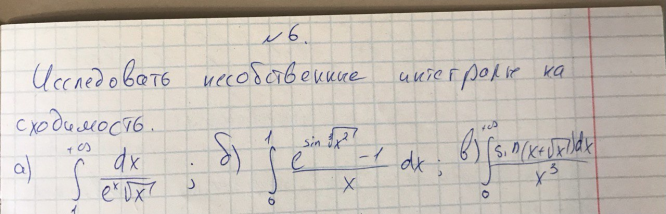 №6.
Исследовать несобственные интегралы на
сходимость.
а) ∫₁^{+∞} dx / (eˣ√x) ; б) ∫₀¹ (e^{sin ∛x²} − 1) / x dx ; в) ∫₀^{+∞} sin(x+√x)dx / x³